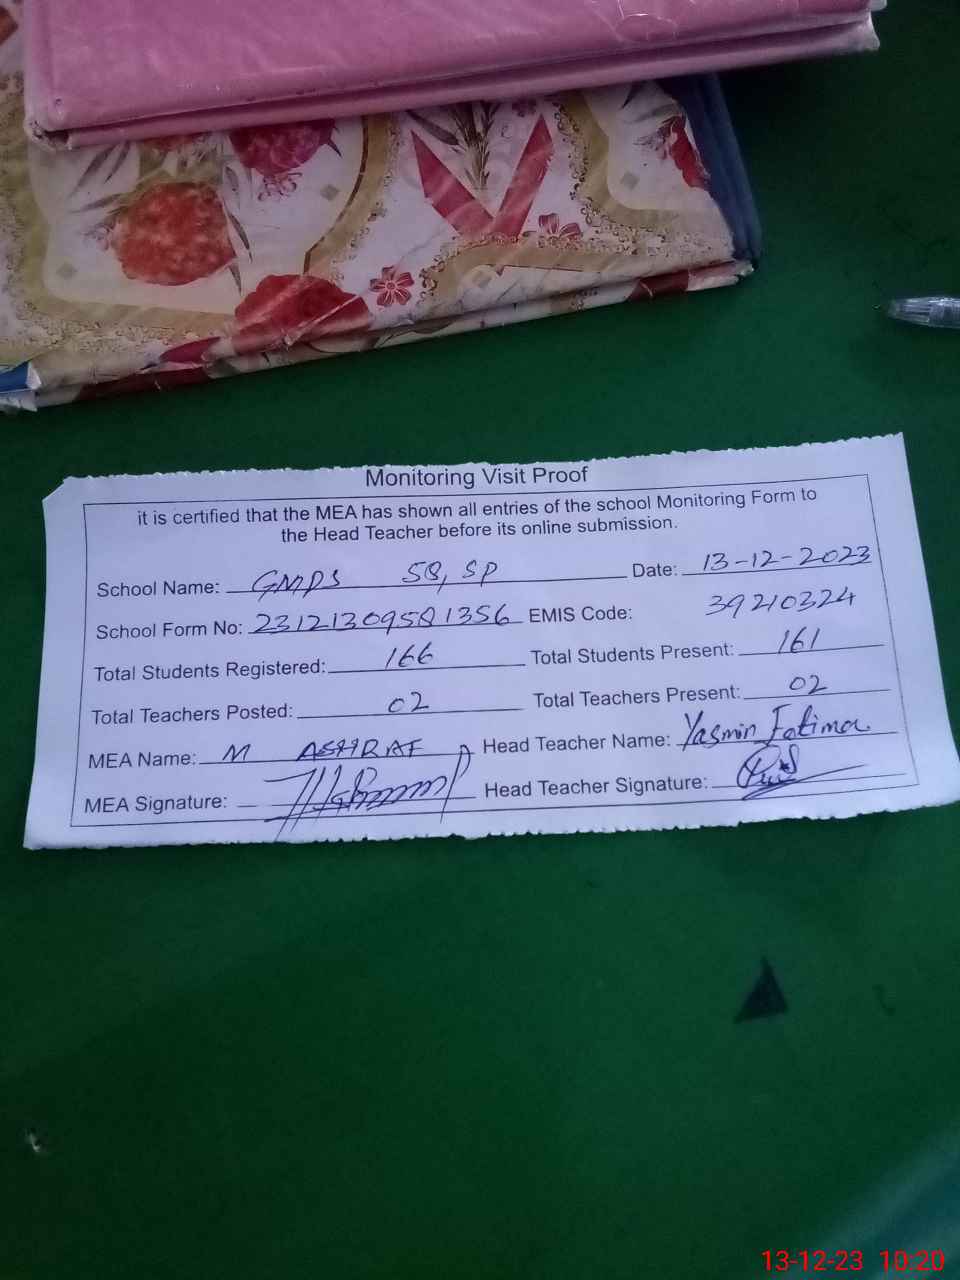 Monitoring Visit Proof
it is certified that the MEA has shown all entries of the school Monitoring Form to
the Head Teacher before its online submission.
School Name: GMPS 58, SP Date: 13-12-2023
School Form No: 23121309581356 EMIS Code: 39210324
Total Students Registered: 166 Total Students Present: 161
Total Teachers Posted: 02 Total Teachers Present: 02
MEA Name: M ASHRAF Head Teacher Name: Yasmin Fatima
MEA Signature: Head Teacher Signature:
13-12-23 10:20